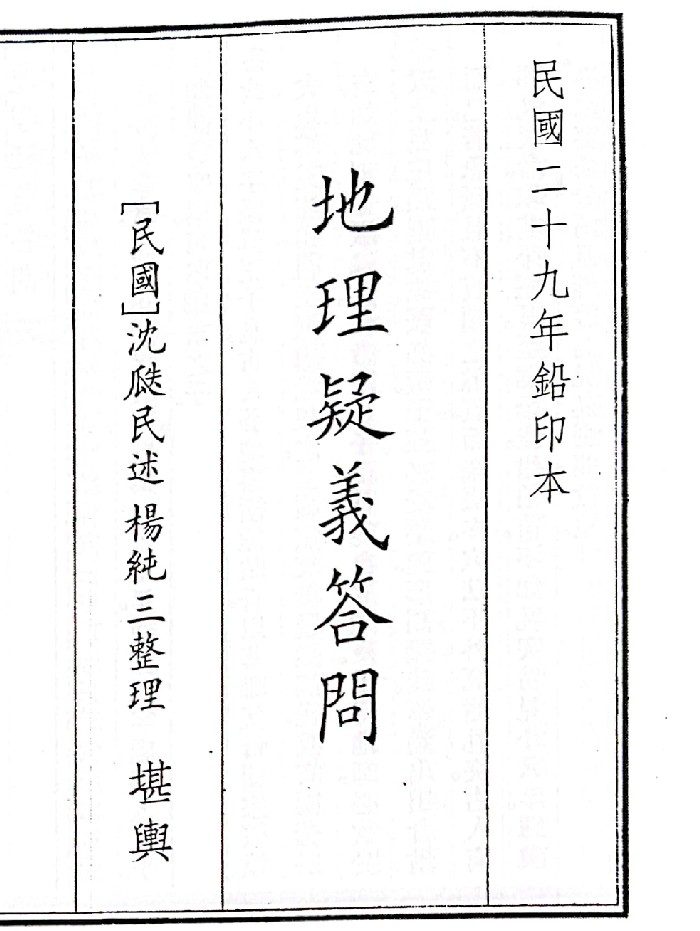 民國二十九年鉛印本
地理疑義答問
［民國］沈瓞民述 楊純三整理 堪輿